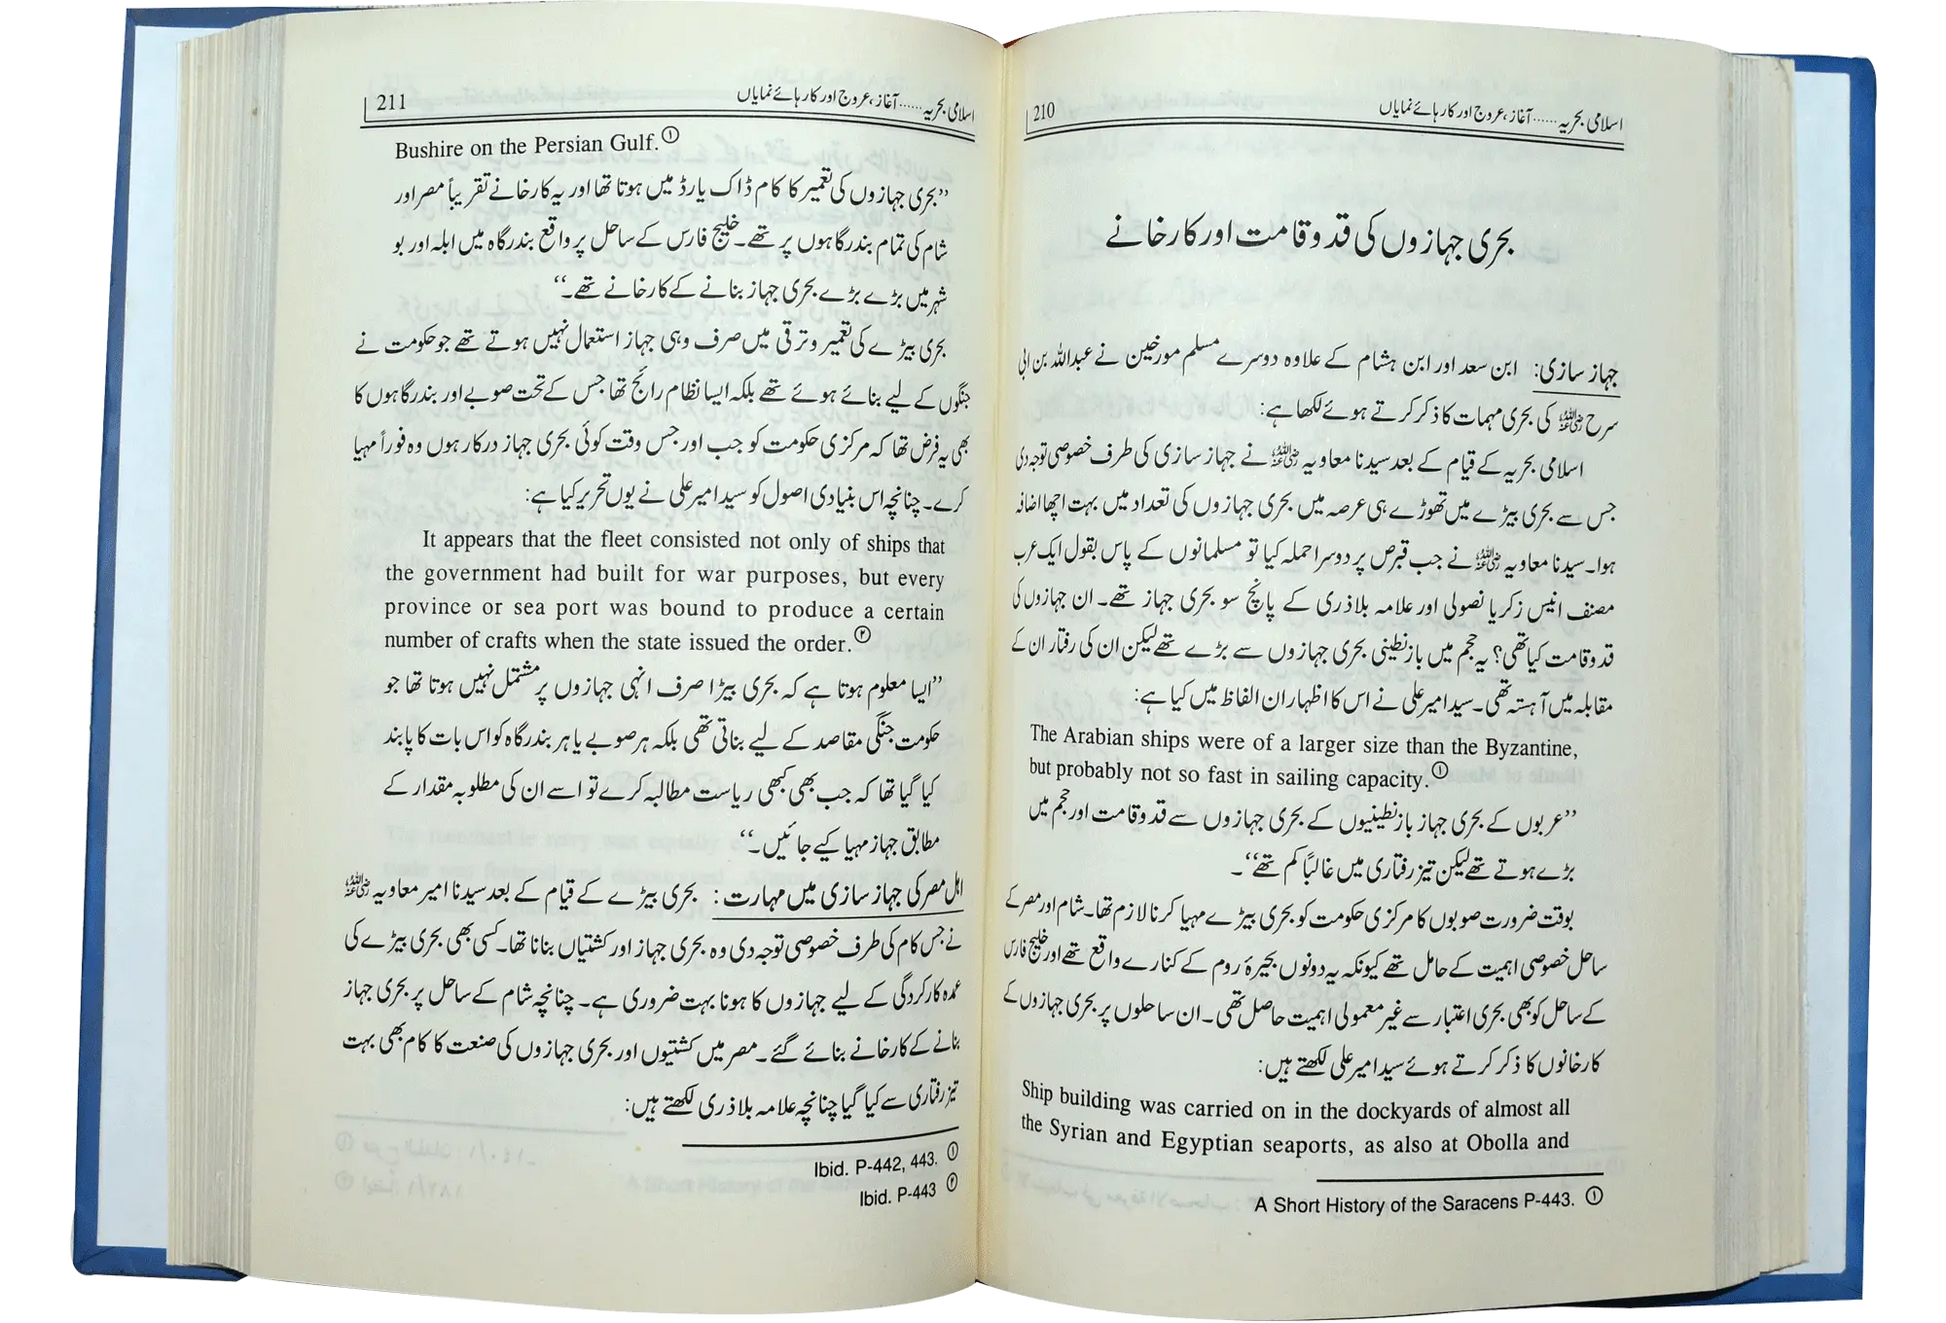 اسلامی بحریہ......آغاز، عروج اور کارہائے نمایاں 210
بحری جہازوں کی قدوقامت اور کارخانے
جہاز سازی: ابن سعد اور ابن ہشام کے علاوہ دوسرے مسلم مورخین نے عبداللہ بن ابی
سرح رضی اللہ عنہ کی بحری مہمات کا ذکر کرتے ہوئے لکھا ہے:
اسلامی بحریہ کے قیام کے بعد سیدنا معاویہ رضی اللہ عنہ نے جہاز سازی کی طرف خصوصی توجہ دی
جس سے بحری بیڑے میں تھوڑے ہی عرصہ میں بحری جہازوں کی تعداد میں بہت اچھا اضافہ
ہوا۔ سیدنا معاویہ رضی اللہ عنہ نے جب قبرص پر دوسرا حملہ کیا تو مسلمانوں کے پاس بقول ایک عرب
مصنف انیس زکریا نصولی اور علامہ بلاذری کے پانچ سو بحری جہاز تھے۔ ان جہازوں کی
قدوقامت کیا تھی؟ یہ حجم میں بازنطینی بحری جہازوں سے بڑے تھے لیکن ان کی رفتار ان کے
مقابلہ میں آہستہ تھی۔ سید امیر علی نے اس کا اظہار ان الفاظ میں کیا ہے:
The Arabian ships were of a larger size than the Byzantine,
but probably not so fast in sailing capacity.①
”عربوں کے بحری جہاز بازنطینیوں کے بحری جہازوں سے قدوقامت اور حجم میں
بڑے ہوتے تھے لیکن تیز رفتاری میں غالباً کم تھے“۔
بوقت ضرورت صوبوں کا مرکزی حکومت کو بحری بیڑے مہیا کرنا لازم تھا۔ شام اور مصر کے
ساحل خصوصی اہمیت کے حامل تھے کیونکہ یہ دونوں بحیرۂ روم کے کنارے واقع تھے اور خلیج فارس
کے ساحل کو بھی بحری اعتبار سے غیر معمولی اہمیت حاصل تھی۔ ان ساحلوں پر بحری جہازوں کے
کارخانوں کا ذکر کرتے ہوئے سید امیر علی لکھتے ہیں:
Ship building was carried on in the dockyards of almost all
the Syrian and Egyptian seaports, as also at Obolla and
① A Short History of the Saracens P-443.
اسلامی بحریہ......آغاز، عروج اور کارہائے نمایاں 211
Bushire on the Persian Gulf.①
”بحری جہازوں کی تعمیر کا کام ڈاک یارڈ میں ہوتا تھا اور یہ کارخانے تقریباً مصر اور
شام کی تمام بندرگاہوں پر تھے۔ خلیج فارس کے ساحل پر واقع بندرگاہ میں ابلہ اور بو
شہر میں بڑے بڑے بحری جہاز بنانے کے کارخانے تھے۔“
بحری بیڑے کی تعمیر و ترقی میں صرف وہی جہاز استعمال نہیں ہوتے تھے جو حکومت نے
جنگوں کے لیے بنائے ہوئے تھے بلکہ ایسا نظام رائج تھا جس کے تحت صوبے اور بندرگاہوں کا
بھی یہ فرض تھا کہ مرکزی حکومت کو جب اور جس وقت کوئی بحری جہاز درکار ہوں وہ فوراً مہیا
کرے۔ چنانچہ اس بنیادی اصول کو سید امیر علی نے یوں تحریر کیا ہے:
It appears that the fleet consisted not only of ships that
the government had built for war purposes, but every
province or sea port was bound to produce a certain
number of crafts when the state issued the order.②
”ایسا معلوم ہوتا ہے کہ بحری بیڑا صرف انہی جہازوں پر مشتمل نہیں ہوتا تھا جو
حکومت جنگی مقاصد کے لیے بناتی تھی بلکہ ہر صوبے یا ہر بندرگاہ کو اس بات کا پابند
کیا گیا تھا کہ جب بھی کبھی ریاست مطالبہ کرے تو اسے ان کی مطلوبہ مقدار کے
مطابق جہاز مہیا کیے جائیں۔“
اہل مصر کی جہاز سازی میں مہارت: بحری بیڑے کے قیام کے بعد سیدنا امیر معاویہ رضی اللہ عنہ
نے جس کام کی طرف خصوصی توجہ دی وہ بحری جہاز اور کشتیاں بنانا تھا۔ کسی بھی بحری بیڑے کی
عمدہ کارکردگی کے لیے جہازوں کا ہونا بہت ضروری ہے۔ چنانچہ شام کے ساحل پر بحری جہاز
بنانے کے کارخانے بنائے گئے۔ مصر میں کشتیوں اور بحری جہازوں کی صنعت کا کام بھی بہت
تیز رفتاری سے کیا گیا چنانچہ علامہ بلاذری لکھتے ہیں:
① Ibid. P-442, 443.
② Ibid. P-443